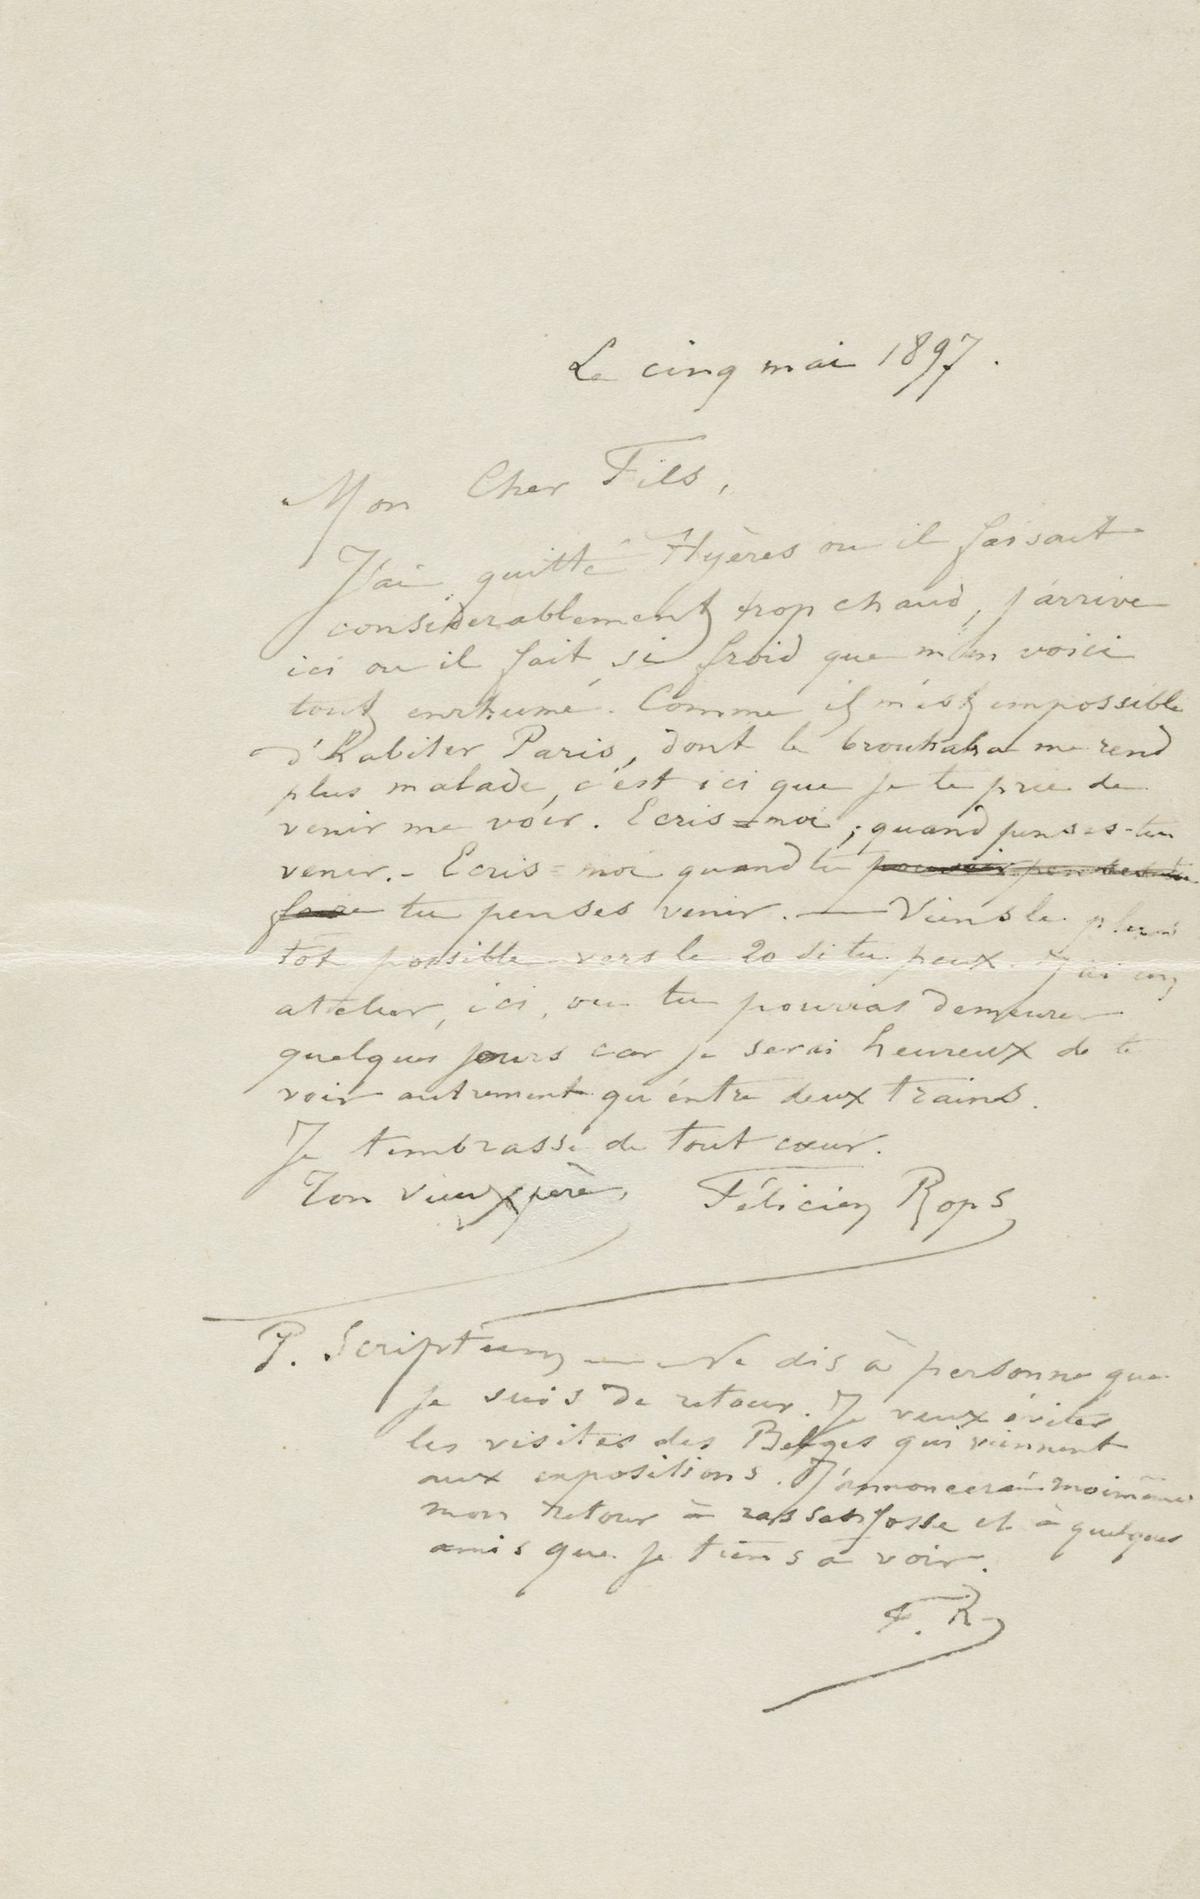 Le cinq mai 1897.
Mon Cher Fils,
J'ai quitté Hyères ou il faisait
considerablement trop chaud, j'arrive
ici ou il fait si froid que m'en voici
tout enrhumé. Comme il m'est impossible
d'habiter Paris, dont le brouhaha me rend
plus malade, c'est ici que je te prie de
venir me voir. Ecris=moi ; quand penses-tu
venir. - Ecris=moi quand tu pouvoir penses-tu
faire tu penses venir. — Viens le plus
tôt possible vers le 20 si tu peux. J'ai un
atelier, ici, ou tu pourras demeurer
quelques jours car je serai heureux de te
voir autrement qu'entre deux trains.
Je t'embrasse de tout cœur.
Ton vieux père, Félicien Rops
P. Scriptum — Ne dis à personne que
je suis de retour. Je veux éviter
les visites des Belges qui viennent
aux expositions. J'annoncerai moi même
mon retour à rassenfosse et à quelques
amis que je tiens à voir.
F. R